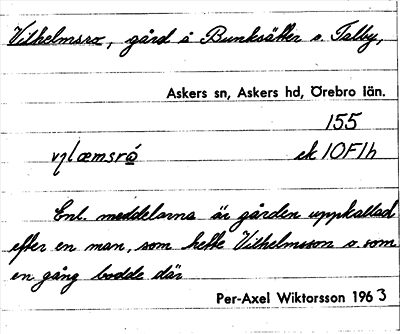 Vilhelmsro, gård å Bunksätter o. Talby,
Askers sn, Askers hd, Örebro län.
155
vɩlæmsró ek 10F1h
Enl. meddelarna är gården uppkallad
efter en man, som hette Vilhelmsson o som
en gång bodde där
Per-Axel Wiktorsson 1963